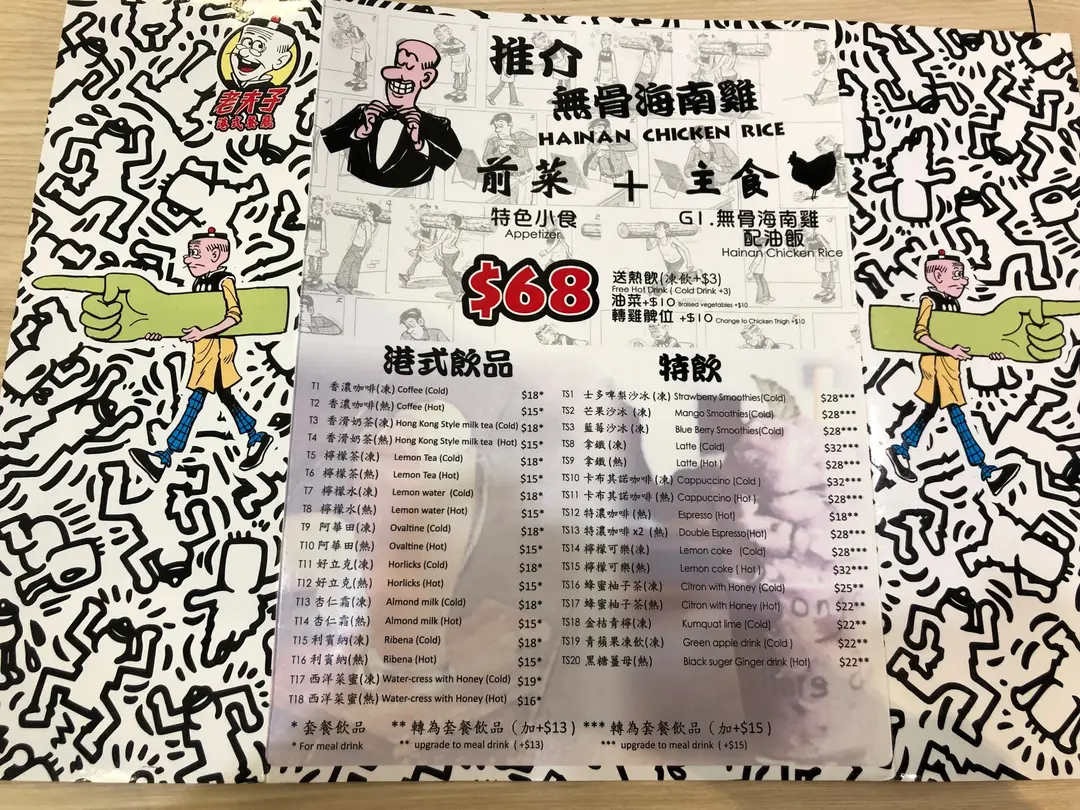 老夫子
港式餐廳
推介
無骨海南雞
HAINAN CHICKEN RICE
前菜 + 主食
特色小食
Appetizer
G1.無骨海南雞
配油飯
Hainan Chicken Rice
$68
送熱飲(凍飲+$3)
Free Hot Drink ( Cold Drink +3)
油菜+$10 Braised vegetables +$10
轉雞髀位 +$10 Change to Chicken Thigh +$10
港式飲品
T1 香濃咖啡(凍) Coffee (Cold) $18*
T2 香濃咖啡(熱) Coffee (Hot) $15*
T3 香滑奶茶(凍) Hong Kong Style milk tea (Cold) $18*
T4 香滑奶茶(熱) Hong Kong Style milk tea (Hot) $15*
T5 檸檬茶(凍) Lemon Tea (Cold) $18*
T6 檸檬茶(熱) Lemon Tea (Hot) $15*
T7 檸檬水(凍) Lemon water (Cold) $18*
T8 檸檬水(熱) Lemon water (Hot) $15*
T9 阿華田(凍) Ovaltine (Cold) $18*
T10 阿華田(熱) Ovaltine (Hot) $15*
T11 好立克(凍) Horlicks (Cold) $18*
T12 好立克(熱) Horlicks (Hot) $15*
T13 杏仁霜(凍) Almond milk (Cold) $18*
T14 杏仁霜(熱) Almond milk (Hot) $15*
T15 利賓納(凍) Ribena (Cold) $18*
T16 利賓納(熱) Ribena (Hot) $15*
T17 西洋菜蜜(凍) Water-cress with Honey (Cold) $19*
T18 西洋菜蜜(熱) Water-cress with Honey (Hot) $16*
特飲
TS1 士多啤梨沙冰 (凍) Strawberry Smoothies(Cold) $28***
TS2 芒果沙冰 (凍) Mango Smoothies(Cold) $28***
TS3 藍莓沙冰 (凍) Blue Berry Smoothies(Cold) $28***
TS8 拿鐵 (凍) Latte (Cold) $32***
TS9 拿鐵 (熱) Latte (Hot ) $28***
TS10 卡布其諾咖啡 (凍) Cappuccino (Cold ) $32***
TS11 卡布其諾咖啡 (熱) Cappuccino (Hot ) $28***
TS12 特濃咖啡 (熱) Espresso (Hot) $18**
TS13 特濃咖啡 x2 (熱) Double Espresso(Hot) $28***
TS14 檸檬可樂(凍) Lemon coke (Cold) $28***
TS15 檸檬可樂(熱) Lemon coke ( Hot ) $32***
TS16 蜂蜜柚子茶(凍) Citron with Honey (Cold) $25**
TS17 蜂蜜柚子茶(熱) Citron with Honey (Hot) $22**
TS18 金桔青檸(凍) Kumquat lime (Cold) $22**
TS19 青蘋果凍飲(凍) Green apple drink (Cold ) $22**
TS20 黑糖薑母(熱) Black suger Ginger drink (Hot) $22**
* 套餐飲品 ** 轉為套餐飲品 ( 加+$13 ) *** 轉為套餐飲品 ( 加+$15 )
* For meal drink ** upgrade to meal drink ( +$13) *** upgrade to meal drink ( +$15)